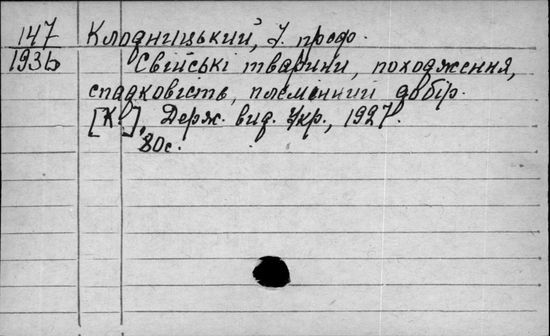 147 Клодницький, І. проф.
193ь Свійські тварини, походження,
спадковість, племінний добір.
[К.], Держ. вид. Укр., 1927.
80с.